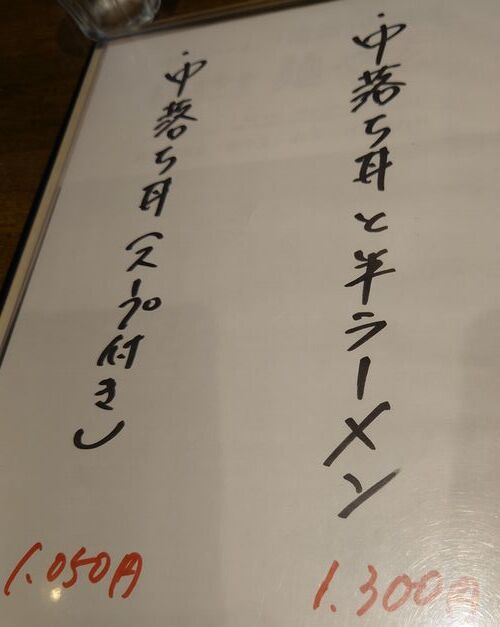 ・中落ち丼と半ラーメン
1.300円
・中落ち丼(スープ付き)
1.050円